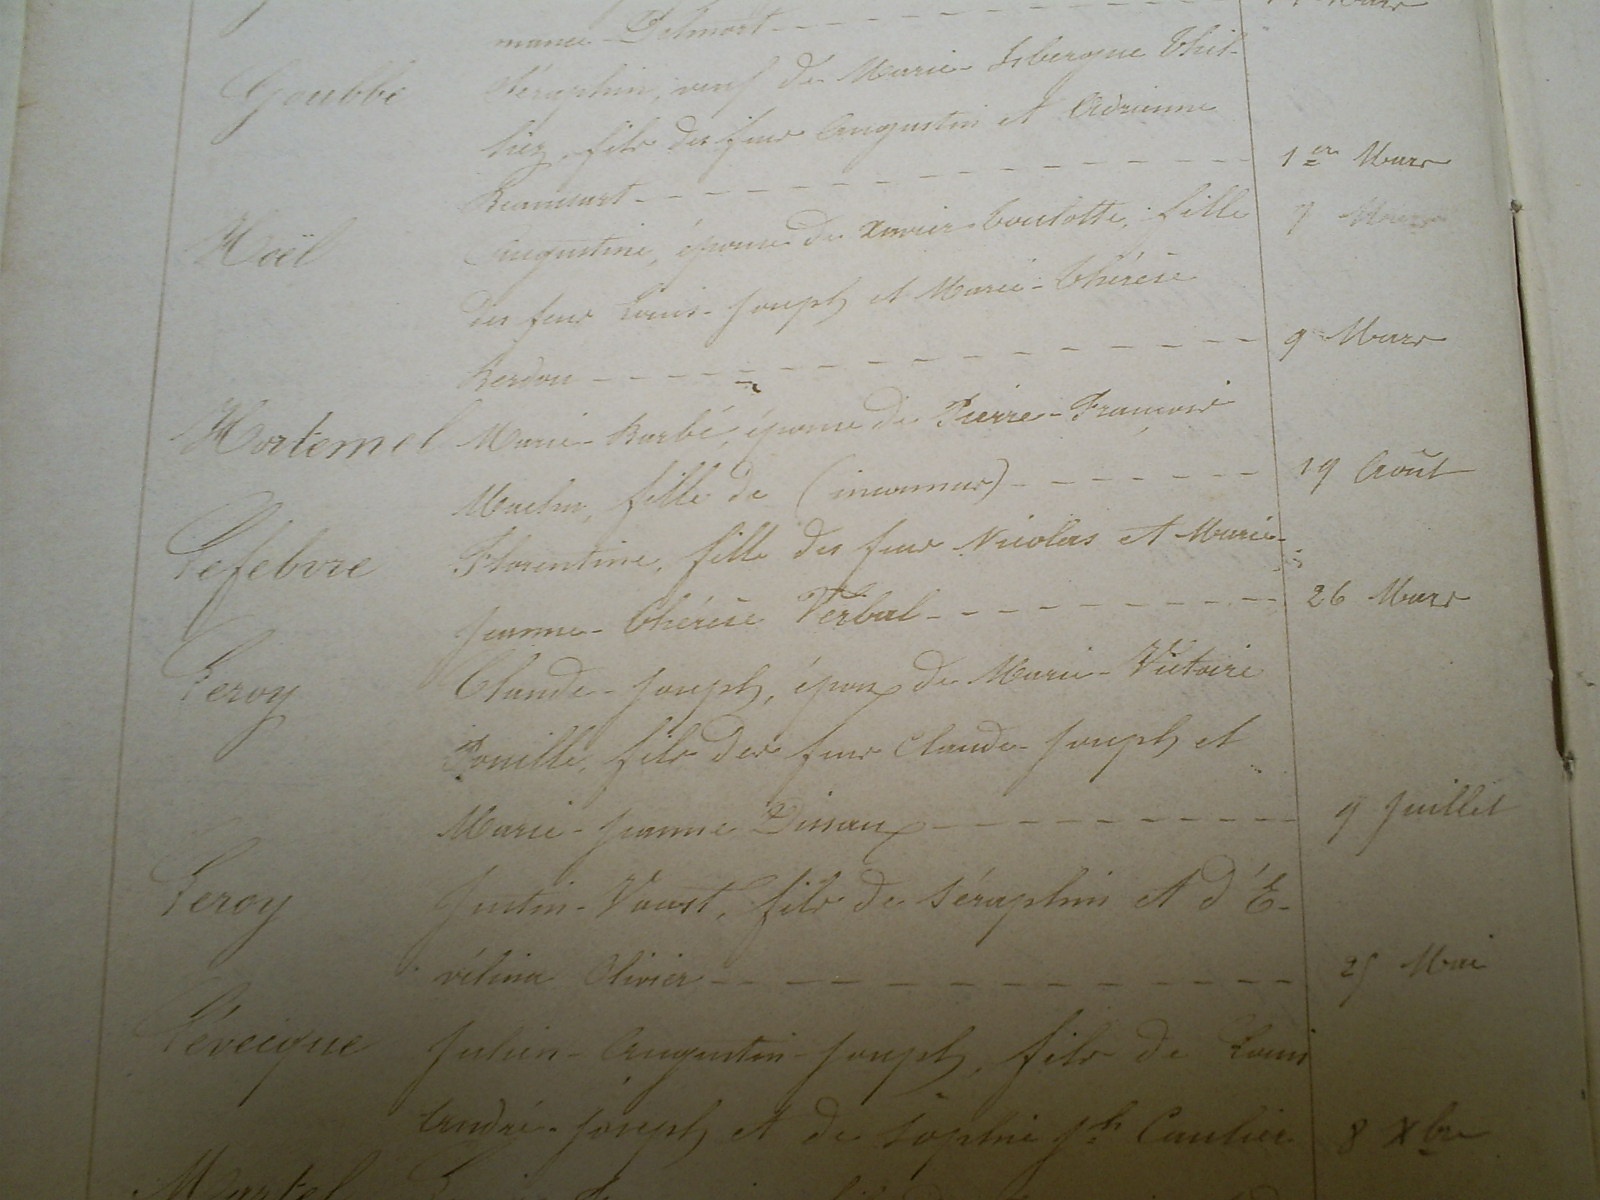 mance Delmort
Goubbe Séraphin, veuf de Marie-Isbergue Thil-
liez, fils des feus Augustin et Adrienne
Beaussart 1er Mars
Haël Augustine, épouse de Xavier Coulotte, fille 9 Mars
des feus Louis-Joseph et Marie-Thérèse
Berdou 9 Mars
Hortemel Marie-Barbé, épouse de Pierre-François
fille de (inconnus) 19 Août
Lefebvre Florentine, fille des feus Nicolas et Marie-
Jeanne-Thérèse Verbal 26 Mars
Leroy Claude-Joseph, époux de Marie-Victoire
Pouille, fils des feus Claude-Joseph et
Marie-Jeanne Dissaux 9 Juillet
Leroy Justin-Vaast, fils de Séraphin et d'É-
vélina Olivier 25 Mai
Lévecque Julien-Augustin-Joseph, fils de Louis
André-Joseph et de Sophie Jh Caulier 8 Xbre
Martel